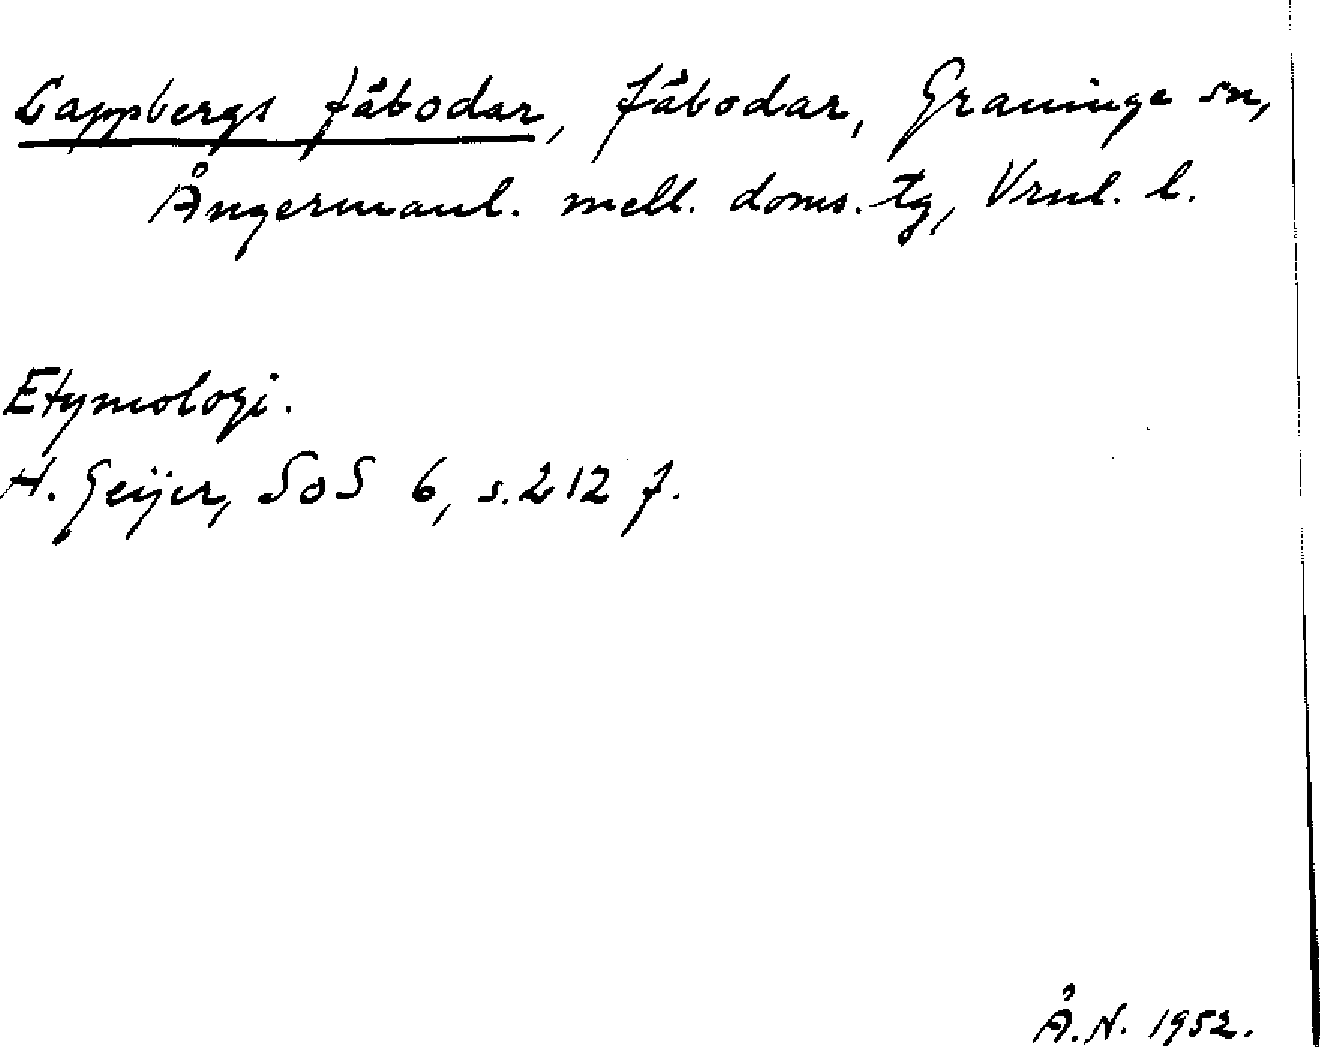 Lappbergs fäbodar, fäbodar, Graninge sn,
Ångermanl. mell. doms. tg, Vrnl. l.
Etymologi.
H. Geijer, SoS 6, s. 212 f.
Å. N. 1952.